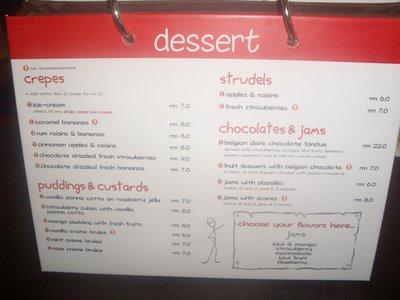 dessert
our recommendations
crepes
ice-cream rm 7.0
choice of any single scoop ice-cream
caramel bananas rm 8.0
rum raisins & bananas rm 8.0
cinnamon apples & raisins rm 8.0
chocolate drizzled fresh strawberries rm 9.0
chocolate drizzled fresh bananas rm 7.0
puddings & custards
vanilla panna cotta on raspberry jelly rm 7.0
strawberry cubes with vanilla panna cotta rm 8.0
mango pudding with fresh fruits rm 8.0
vanilla creme brulee rm 6.0
mint creme brulee rm 7.0
rose creme brulee rm 7.0
strudels
apples & raisins rm 6.0
fresh strawberries rm 7.0
chocolates & jams
belgian dark chocolate fondue rm 22.0
fruit skewers with belgian chocolate rm 7.0
jams with pizzelles rm 6.0
choice of any 2 jams
jams with scones rm 8.0
choice of any 2 jams
choose your flavors here...
jams
kiwi & mango
strawberry
marmalade
kiwi fruit
blueberry